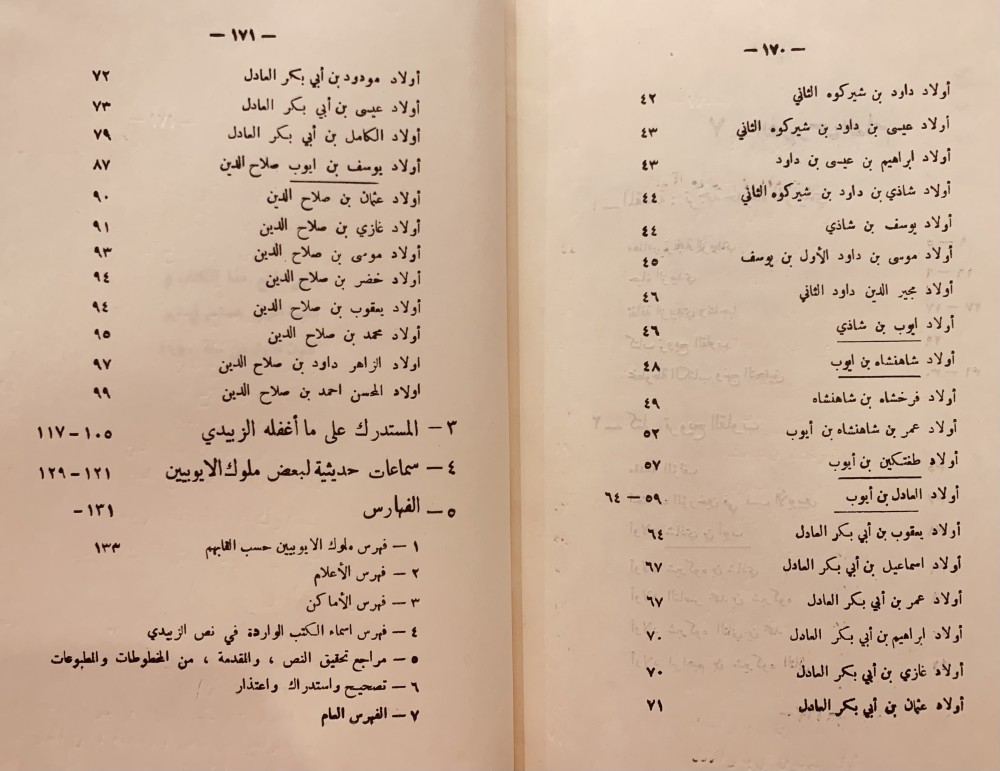 — ١٧٠ —
أولاد داود بن شيركوه الثاني ٤٢
أولاد عيسى بن داود بن شيركوه الثاني ٤٣
أولاد ابراهيم بن عيسى بن داود ٤٣
أولاد شاذي بن داود بن شيركوه الثاني ٤٤
أولاد يوسف بن شاذي ٤٤
أولاد موسى بن داود الأول بن يوسف ٤٥
أولاد مجير الدين داود الثاني ٤٦
أولاد ايوب بن شاذي ٤٦
أولاد شاهنشاه بن ايوب ٤٨
أولاد فرخشاه بن شاهنشاه ٤٩
أولاد عمر بن شاهنشاه بن أيوب ٥٢
أولاد طغتكين بن أيوب ٥٧
أولاد العادل بن أيوب ٥٩ — ٦٤
أولاد يعقوب بن أبي بكر العادل ٦٤
أولاد اسماعيل بن أبي بكر العادل ٦٧
أولاد عمر بن أبي بكر العادل ٦٧
أولاد ابراهيم بن أبي بكر العادل ٧٠
أولاد غازي بن أبي بكر العادل ٧٠
أولاد عثمان بن أبي بكر العادل ٧١
— ١٧١ —
أولاد مودود بن أبي بكر العادل ٧٢
أولاد عيسى بن أبي بكر العادل ٧٣
أولاد الكامل بن أبي بكر العادل ٧٩
أولاد يوسف بن ايوب صلاح الدين ٨٧
أولاد عثمان بن صلاح الدين ٩٠
أولاد غازي بن صلاح الدين ٩١
أولاد موسى بن صلاح الدين ٩٣
أولاد خضر بن صلاح الدين ٩٤
أولاد يعقوب بن صلاح الدين ٩٤
أولاد محمد بن صلاح الدين ٩٥
اولاد الزاهر داود بن صلاح الدين ٩٧
اولاد المحسن احمد بن صلاح الدين ٩٩
٣ — المستدرك على ما أغفله الزبيدي ١٠٥-١١٧
٤ — سماعات حديثية لبعض ملوك الايوبيين ١٢١-١٢٩
٥ — الفهارس ١٣١-
١ — فهرس ملوك الايوبيين حسب القابهم ١٣٣
٢ — فهرس الأعلام
٣ — فهرس الأماكن
٤ — فهرس اسماء الكتب الواردة في نص الزبيدي
٥ — مراجع تحقيق النص ، والمقدمة ، من المخطوطات والمطبوعات
٦ — تصحيح واستدراك واعتذار
٧ — الفهرس العام